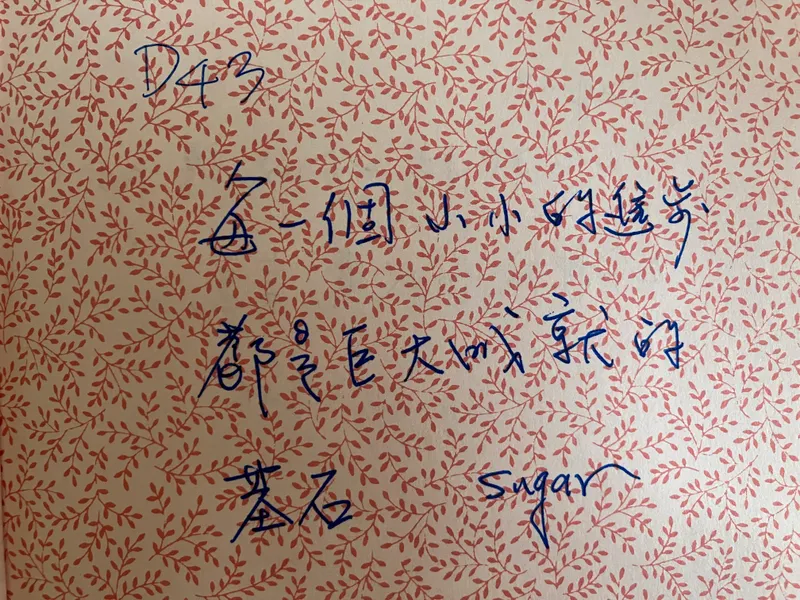 D43
每一個小小的進步
都是巨大成就的
基石 sugar